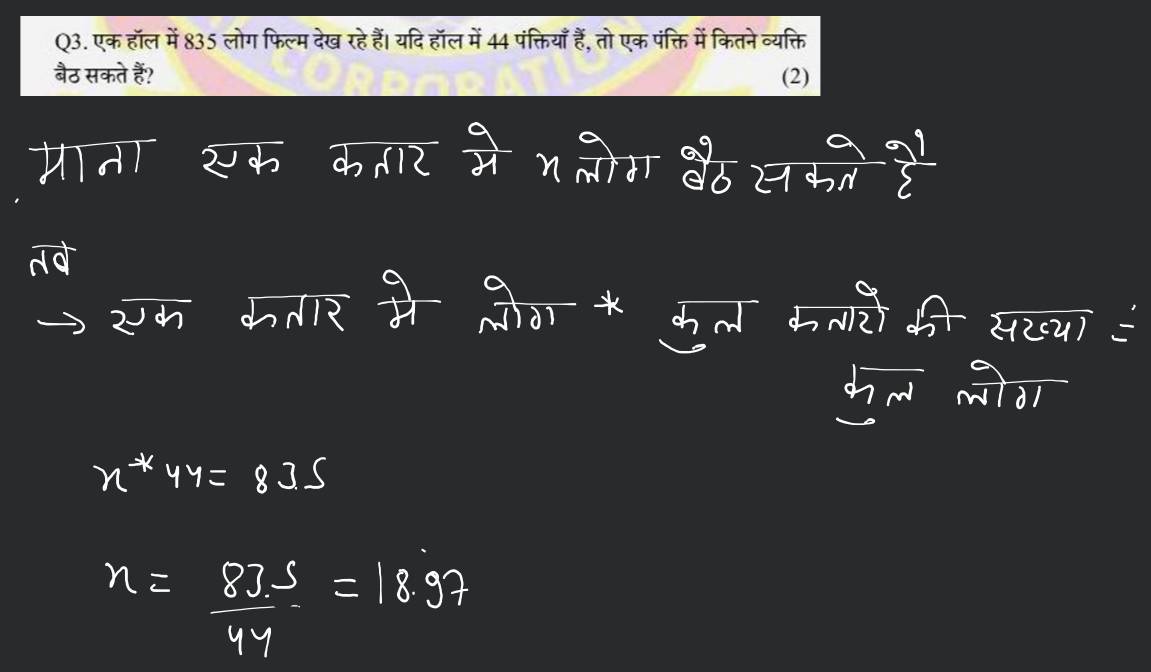 Q3. एक हॉल में 835 लोग फिल्म देख रहे हैं। यदि हॉल में 44 पंक्तियाँ हैं, तो एक पंक्ति में कितने व्यक्ति
बैठ सकते हैं? (2)
CORPORATION
माना एक कतार मे n लोग बैठ सकते है
तब
→ एक कतार मे लोग * कुल कतारो की सख्या =
कुल लोग
n * 44 = 835
n = 835 = 18.97
44